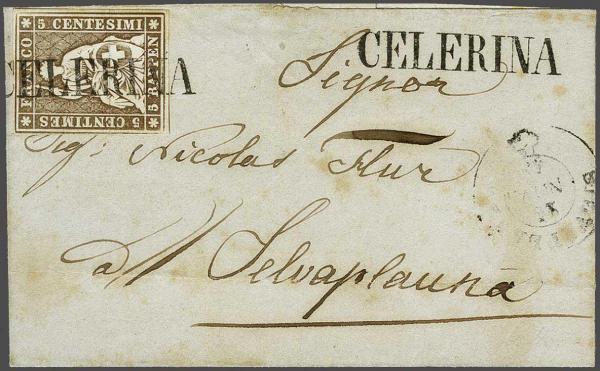 5 CENTESIMI
FRANCO
5 RAPPEN
5 CENTIMES
CELERINA
CELERINA
Signor
Sig: Nicolas Flur
a Selvaplauna